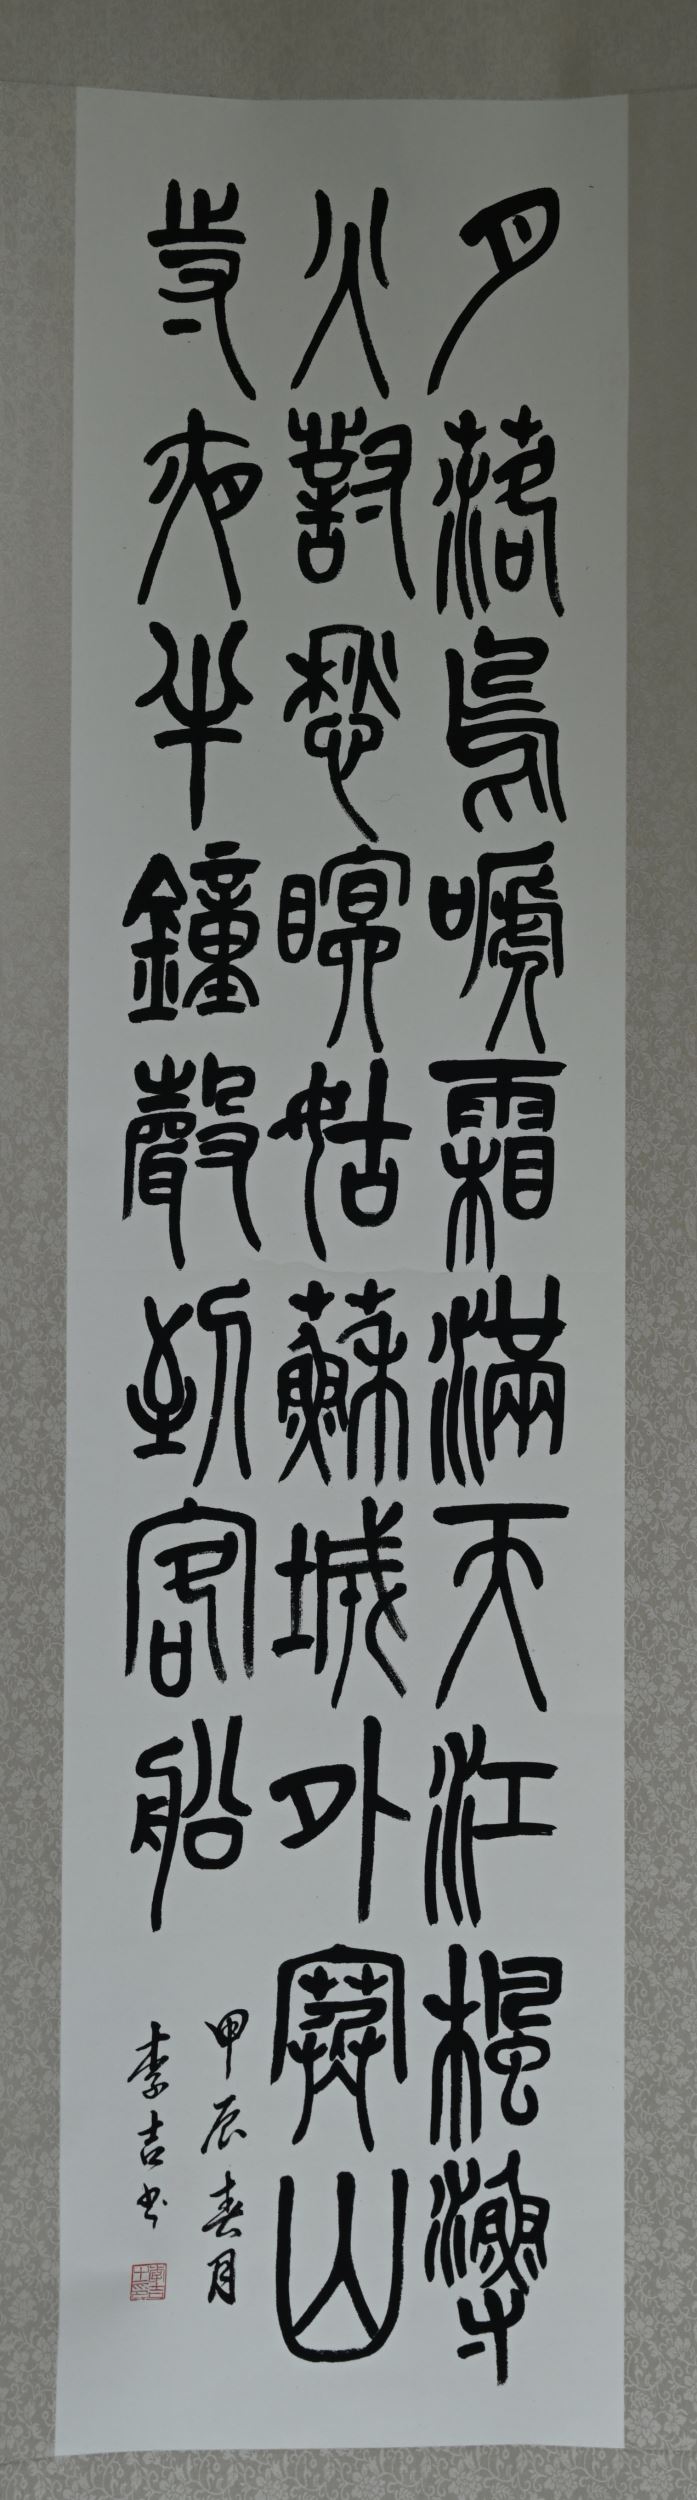 月落烏嗁霜滿天江楓漁
火對愁瞑姑蘇城外寒山
寺夜半鐘聲到客船
甲辰春月
李吉书